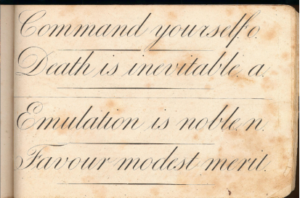 Command yourselfe.
Death is inevitable a.
Emulation is noble n.
Favour modest merit.